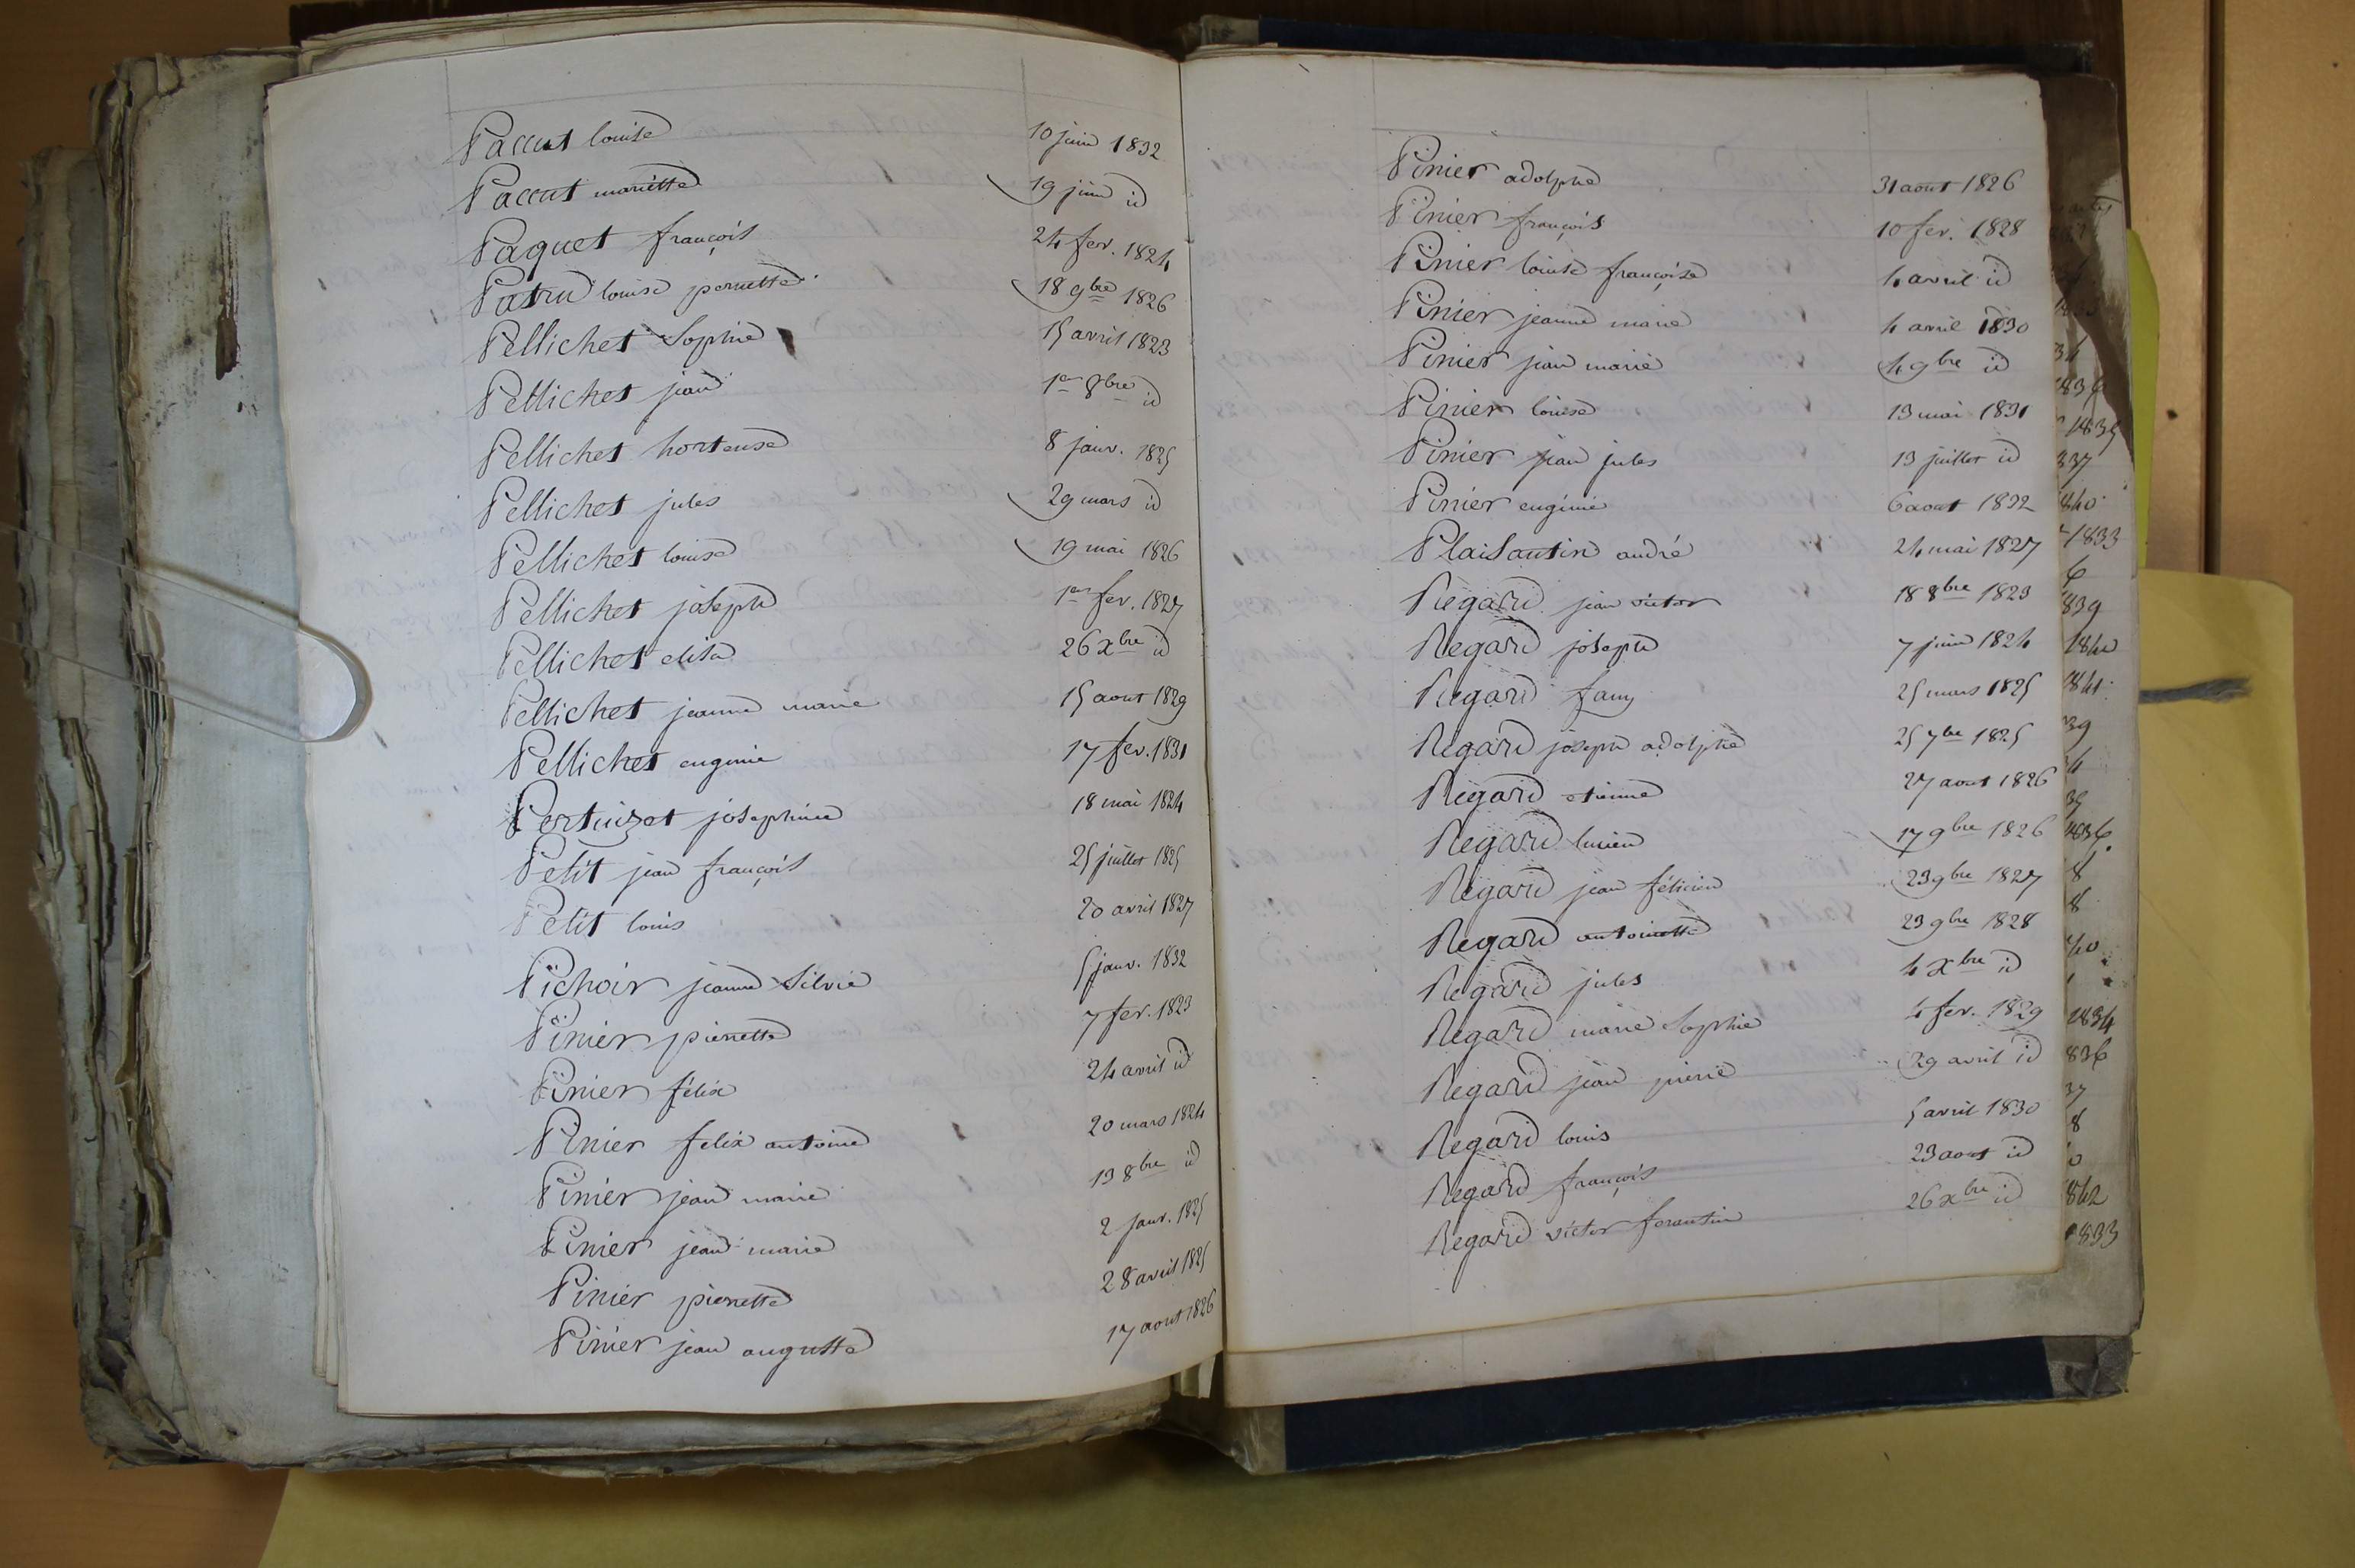 Paccut louise 10 juin 1832
Paccut mariette 19 juin id
Paquet françois 24 fev. 1824
Patru louise pernette 18 9bre 1826
Pellichet Sophie 15 avril 1823
Pellichet jean 1er 8bre id
Pellichet hortense 8 janv. 1825
Pellichet jules 29 mars id
Pellichet louise 19 mai 1826
Pellichet joseph 1er fev. 1827
Pellichet elisa 26 xbre id
Pellichet jeanne marie 15 aout 1829
Pellichet eugenie 17 fev. 1831
Pertuizet josephine 18 mai 1824
Petit jean françois 25 juillet 1825
Petit louis 20 avril 1827
Pichoir jeanne Silvie 5 janv. 1832
Pinier pierrette 7 fev. 1823
Pinier félix 24 avril id
Pinier felix antoine 20 mars 1824
Pinier jean marie 13 8bre id
Pinier jean marie 2 janv. 1825
Pinier pierrette 28 avril 1825
Pinier jean auguste 17 aout 1826
Pinier adolphe 31 aout 1826
Pinier françois 10 fev. 1828
Pinier louise françoise 4 avril id
Pinier jeanne marie 4 avril 1830
Pinier jean marie 4 9bre id
Pinier louise 13 mai 1831
Pinier jean jules 13 juillet id
Pinier eugénie 6 aout 1832
Plaisantin andré 24 mai 1827
Regard jean victor 18 8bre 1823
Regard joseph 7 juin 1824
Regard fany 25 mars 1825
Regard joseph adolphe 25 7bre 1825
Regard etienne 27 aout 1826
Regard lucien 17 9bre 1826
Regard jean félicien 23 9bre 1827
Regard antoinette 23 9bre 1828
Regard jules 4 xbre id
Regard marie Sophie 4 fev. 1829
Regard jean pierre 29 avril id
Regard louis 5 avril 1830
Regard françois 23 aout id
Regard victor 26 xbre id
34
836
1835
837
840
1833
6
839
1840
841
39
4
35
1836
8
8
40
1834
836
37
8
842
1833